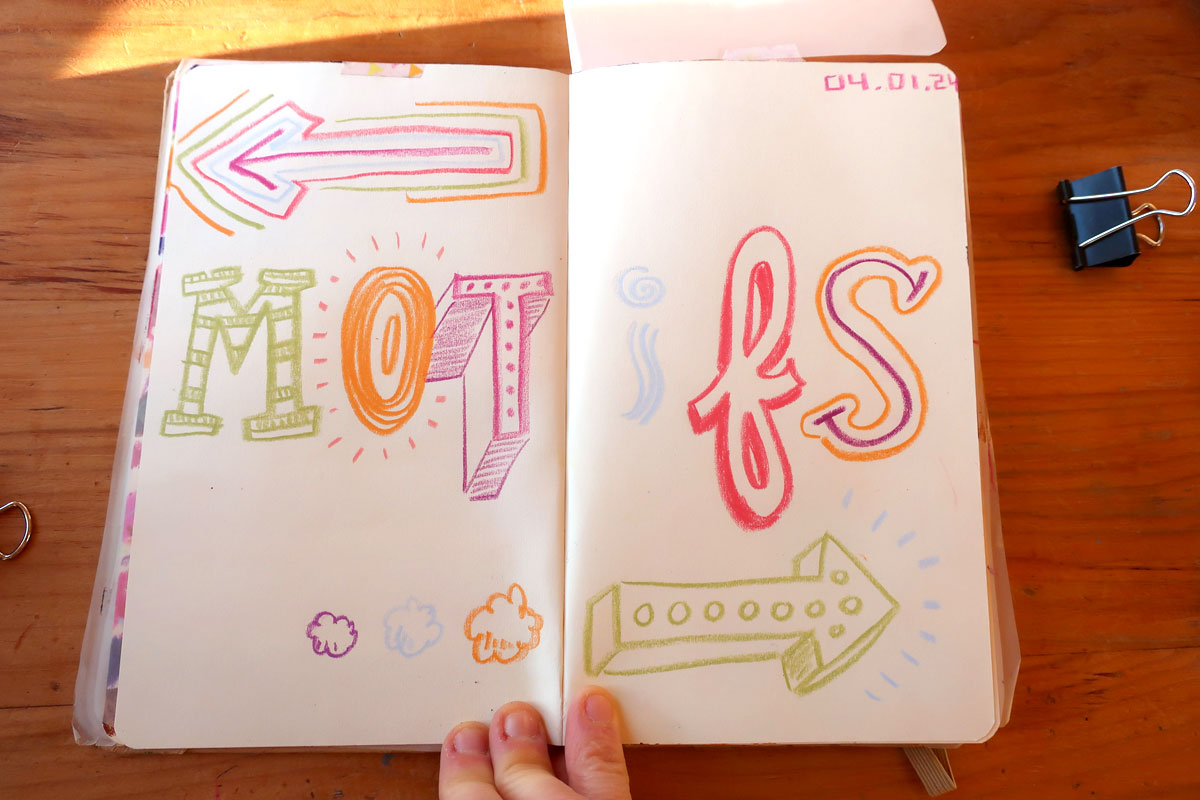 04.01.24
MOTifS